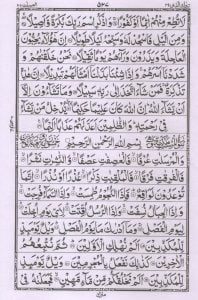 مِنْهُمْ اٰثِمًا اَوْ كَفُوْرًا وَاذْكُرِ اسْمَ رَبِّكَ بُكْرَةً وَّاَصِيْلًا
وَمِنَ الَّيْلِ فَاسْجُدْ لَهٗ وَسَبِّحْهُ لَيْلًا طَوِيْلًا اِنَّ هٰٓؤُلَآءِ يُحِبُّوْنَ
الْعَاجِلَةَ وَيَذَرُوْنَ وَرَآءَهُمْ يَوْمًا ثَقِيْلًا نَحْنُ خَلَقْنٰهُمْ وَ
شَدَدْنَآ اَسْرَهُمْ وَاِذَا شِئْنَا بَدَّلْنَآ اَمْثَالَهُمْ تَبْدِيْلًا اِنَّ هٰذِهٖ
تَذْكِرَةٌ فَمَنْ شَآءَ اتَّخَذَ اِلٰى رَبِّهٖ سَبِيْلًا وَمَا تَشَآءُوْنَ اِلَّآ
اَنْ يَّشَآءَ اللّٰهُ اِنَّ اللّٰهَ كَانَ عَلِيْمًا حَكِيْمًا يُّدْخِلُ مَنْ يَّشَآءُ
فِيْ رَحْمَتِهٖ وَالظّٰلِمِيْنَ اَعَدَّ لَهُمْ عَذَابًا اَلِيْمًا
بِسْمِ اللّٰهِ الرَّحْمٰنِ الرَّحِيْمِ
وَالْمُرْسَلٰتِ عُرْفًا فَالْعٰصِفٰتِ عَصْفًا وَّالنّٰشِرٰتِ نَشْرًا
فَالْفٰرِقٰتِ فَرْقًا فَالْمُلْقِيٰتِ ذِكْرًا عُذْرًا اَوْ نُذْرًا اِنَّمَا
تُوْعَدُوْنَ لَوَاقِعٌ فَاِذَا النُّجُوْمُ طُمِسَتْ وَاِذَا السَّمَآءُ فُرِجَتْ
وَاِذَا الْجِبَالُ نُسِفَتْ وَاِذَا الرُّسُلُ اُقِّتَتْ لِاَيِّ يَوْمٍ اُجِّلَتْ
لِيَوْمِ الْفَصْلِ وَمَآ اَدْرٰىكَ مَا يَوْمُ الْفَصْلِ وَيْلٌ يَّوْمَئِذٍ
لِّلْمُكَذِّبِيْنَ اَلَمْ نُهْلِكِ الْاَوَّلِيْنَ ثُمَّ نُتْبِعُهُمُ
الْاٰخِرِيْنَ كَذٰلِكَ نَفْعَلُ بِالْمُجْرِمِيْنَ وَيْلٌ يَّوْمَئِذٍ
لِّلْمُكَذِّبِيْنَ اَلَمْ نَخْلُقْكُّمْ مِّنْ مَّآءٍ مَّهِيْنٍ فَجَعَلْنٰهُ فِيْ